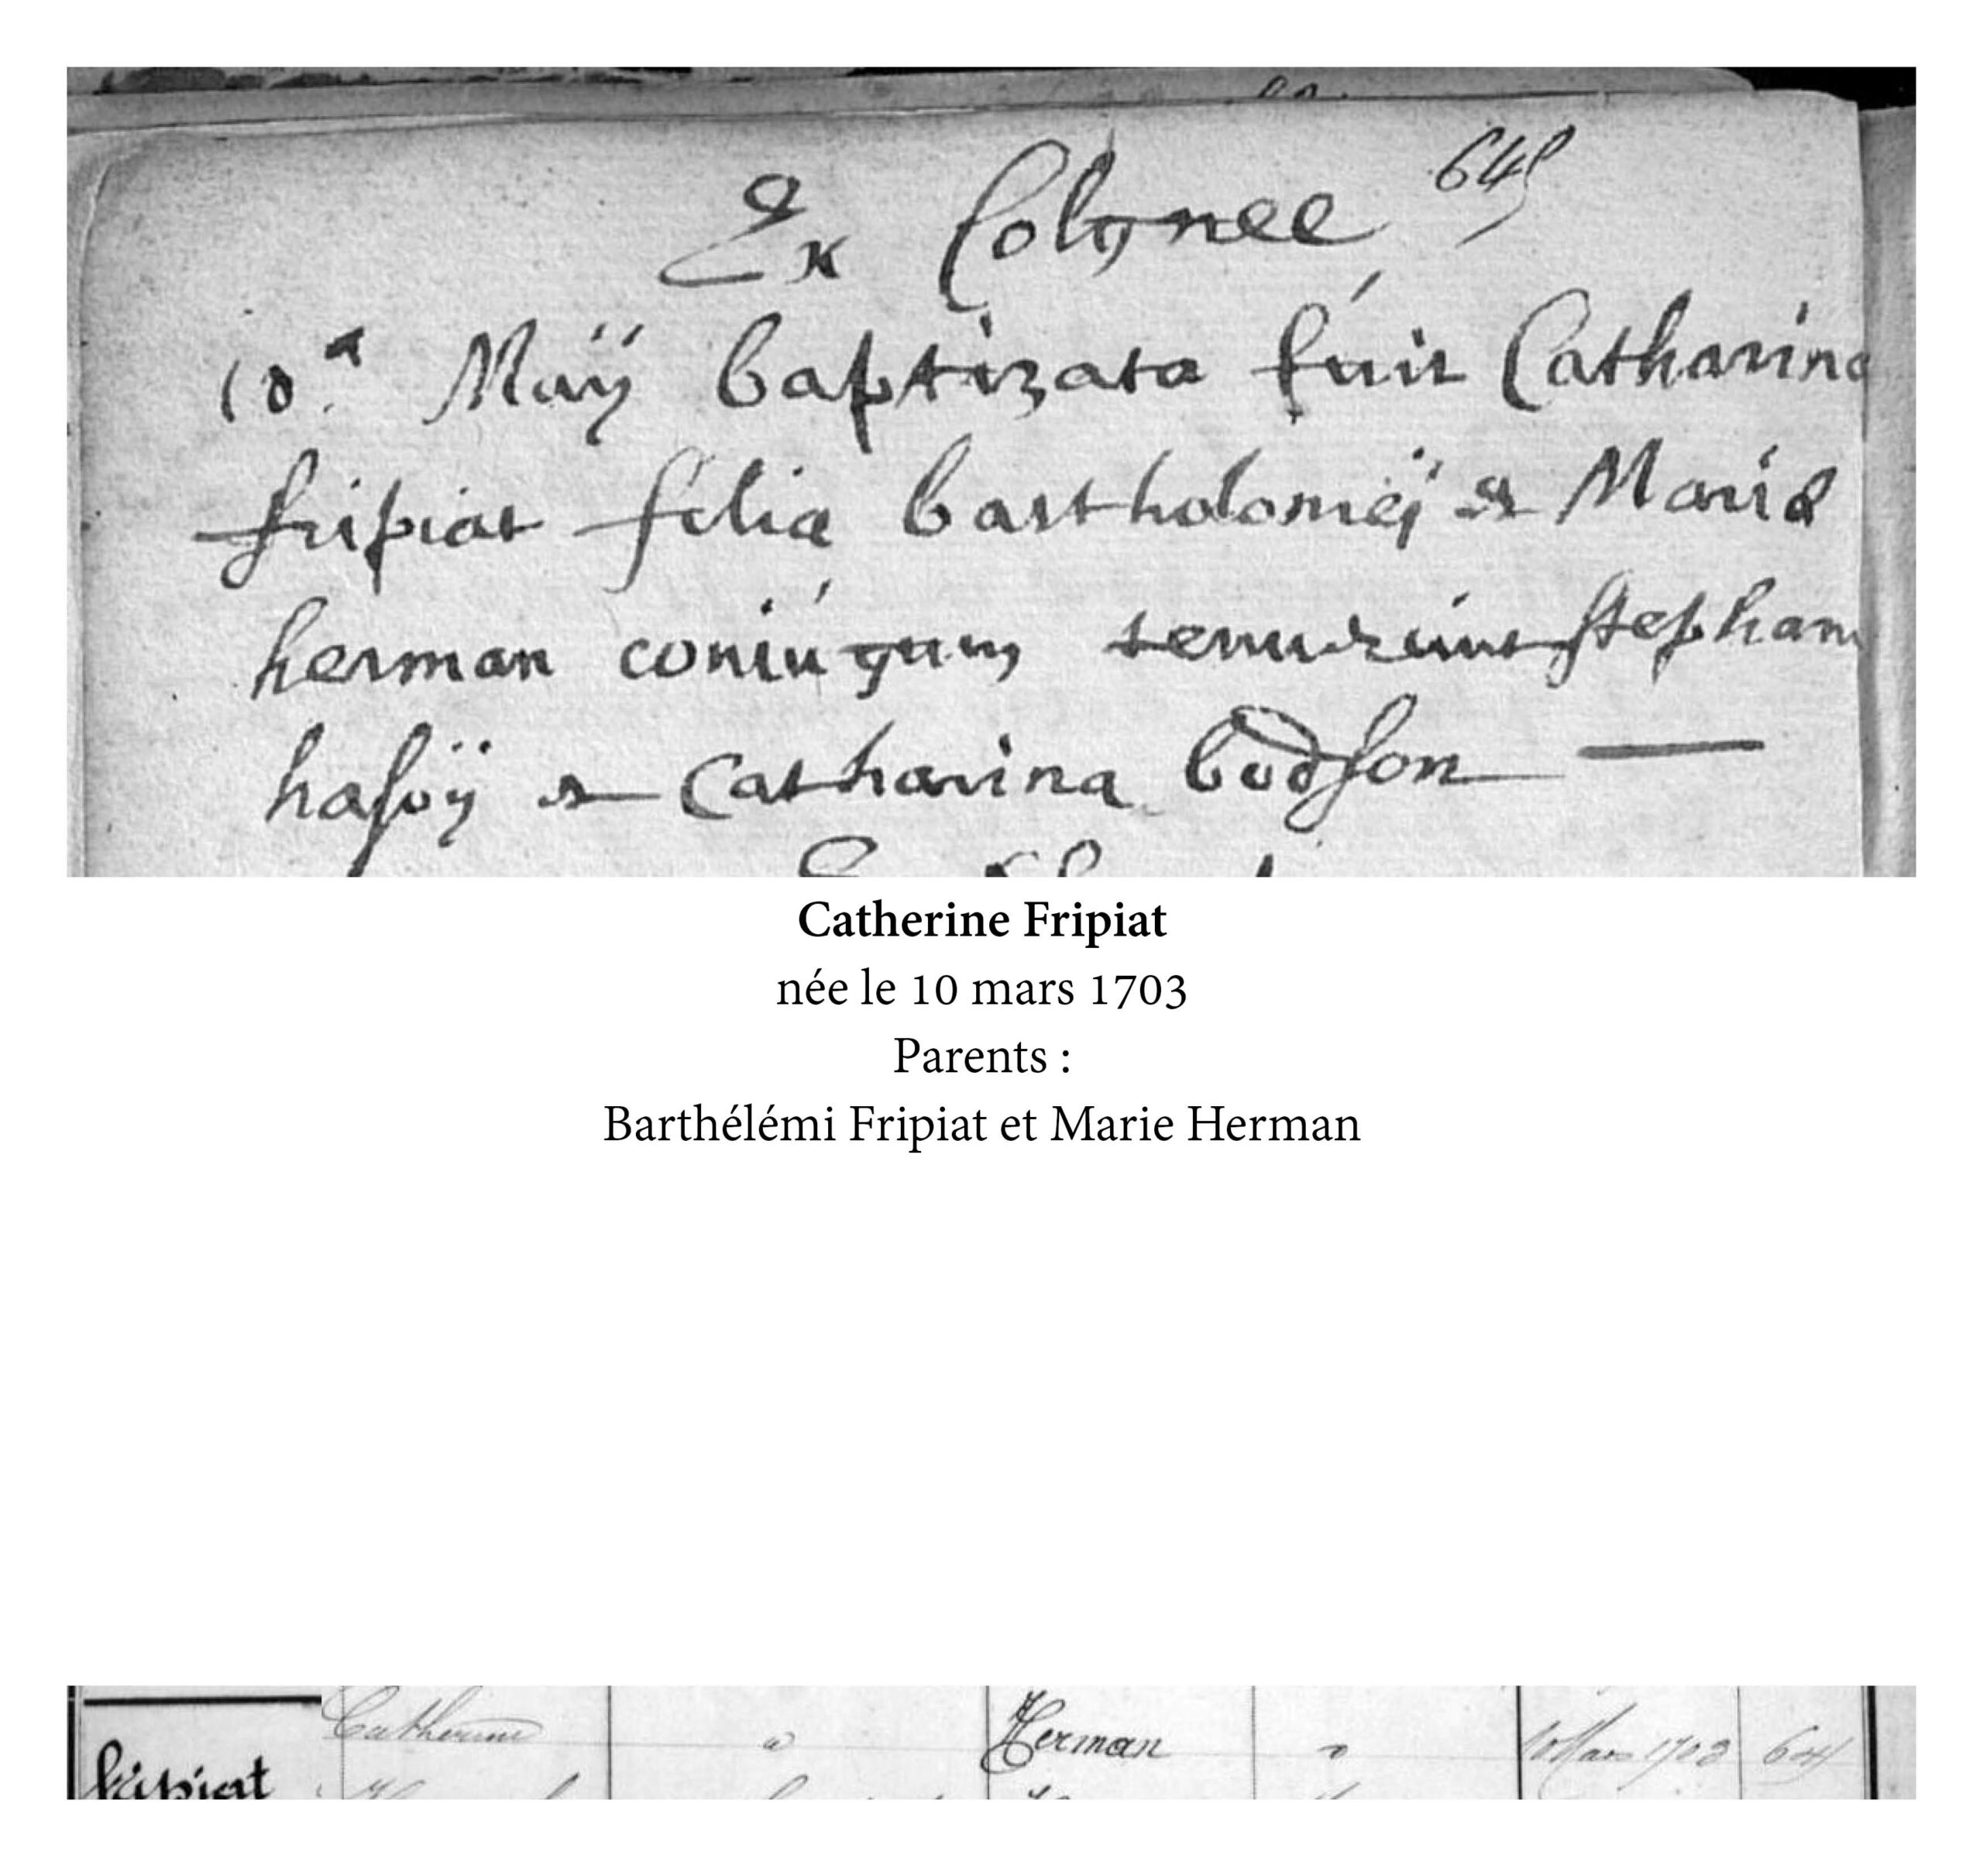 Ex Colognee 64
10.a Maÿ baptizata fuit Catharina
fripiat filia bartholomeÿ et Maria
herman coniúgum tenuerunt Stephan
hasoÿ et Catharina bodson
Catherine Fripiat
née le 10 mars 1703
Parents :
Barthélémi Fripiat et Marie Herman
Catherine Herman 10 Mars 1703 64
fripiat